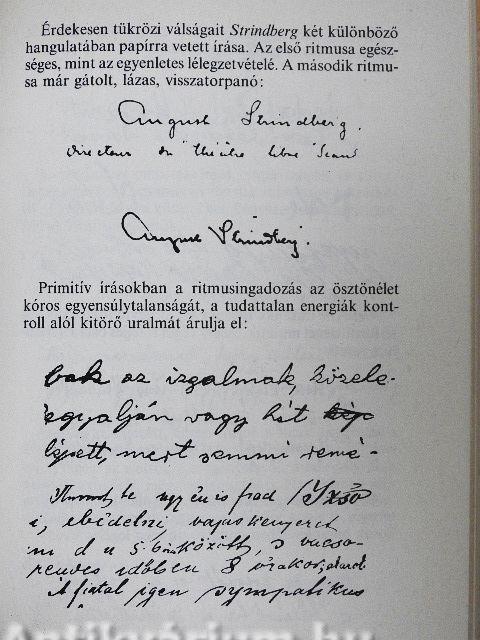 Érdekesen tükrözi válságait Strindberg két különböző
hangulatában papírra vetett írása. Az első ritmusa egész-
séges, mint az egyenletes lélegzetvételé. A második ritmu-
sa már gátolt, lázas, visszatorpanó:
August Strindberg.
Directeur du théâtre libre Scand
August Strindberg.
Primitív írásokban a ritmusingadozás az ösztönélet
kóros egyensúlytalanságát, a tudattalan energiák kont-
roll alól kitörő uralmát árulja el:
bak az izgalmak, közele-
egyalján vagy hét
lépett, mert semmi remé-
úgy én is
i, ebédelni, vajas kenyeret
d u 5 között, s vacso-
rendes időben 8 órakor,
A fiatal igen sympatikus
Antikvárium.hu